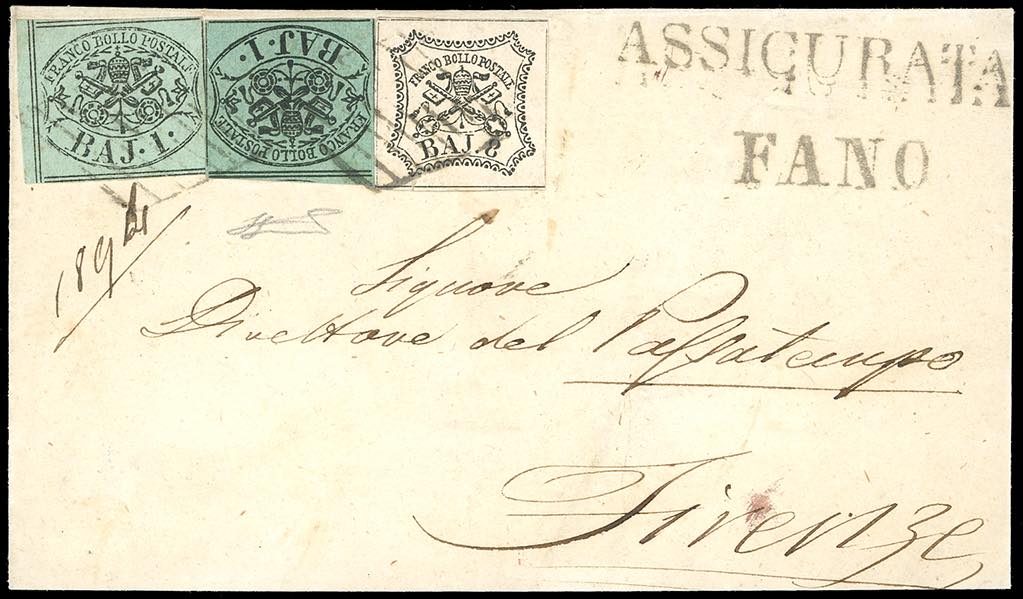 FRANCO BOLLO POSTALE
BAJ. 1.
BAJ. 1.
FRANCO BOLLO POSTALE
FRANCO BOLLO POSTALE
BAJ. 8
ASSICURATA
FANO
Signore
Direttore del Passatempo
Firenze